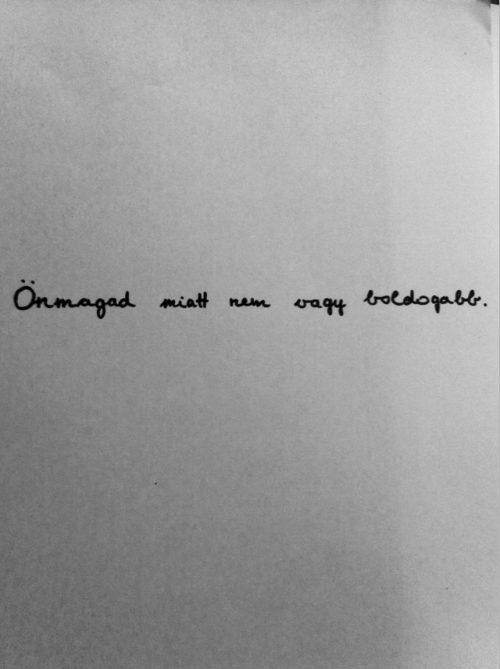 Önmagad miatt nem vagy boldogabb.